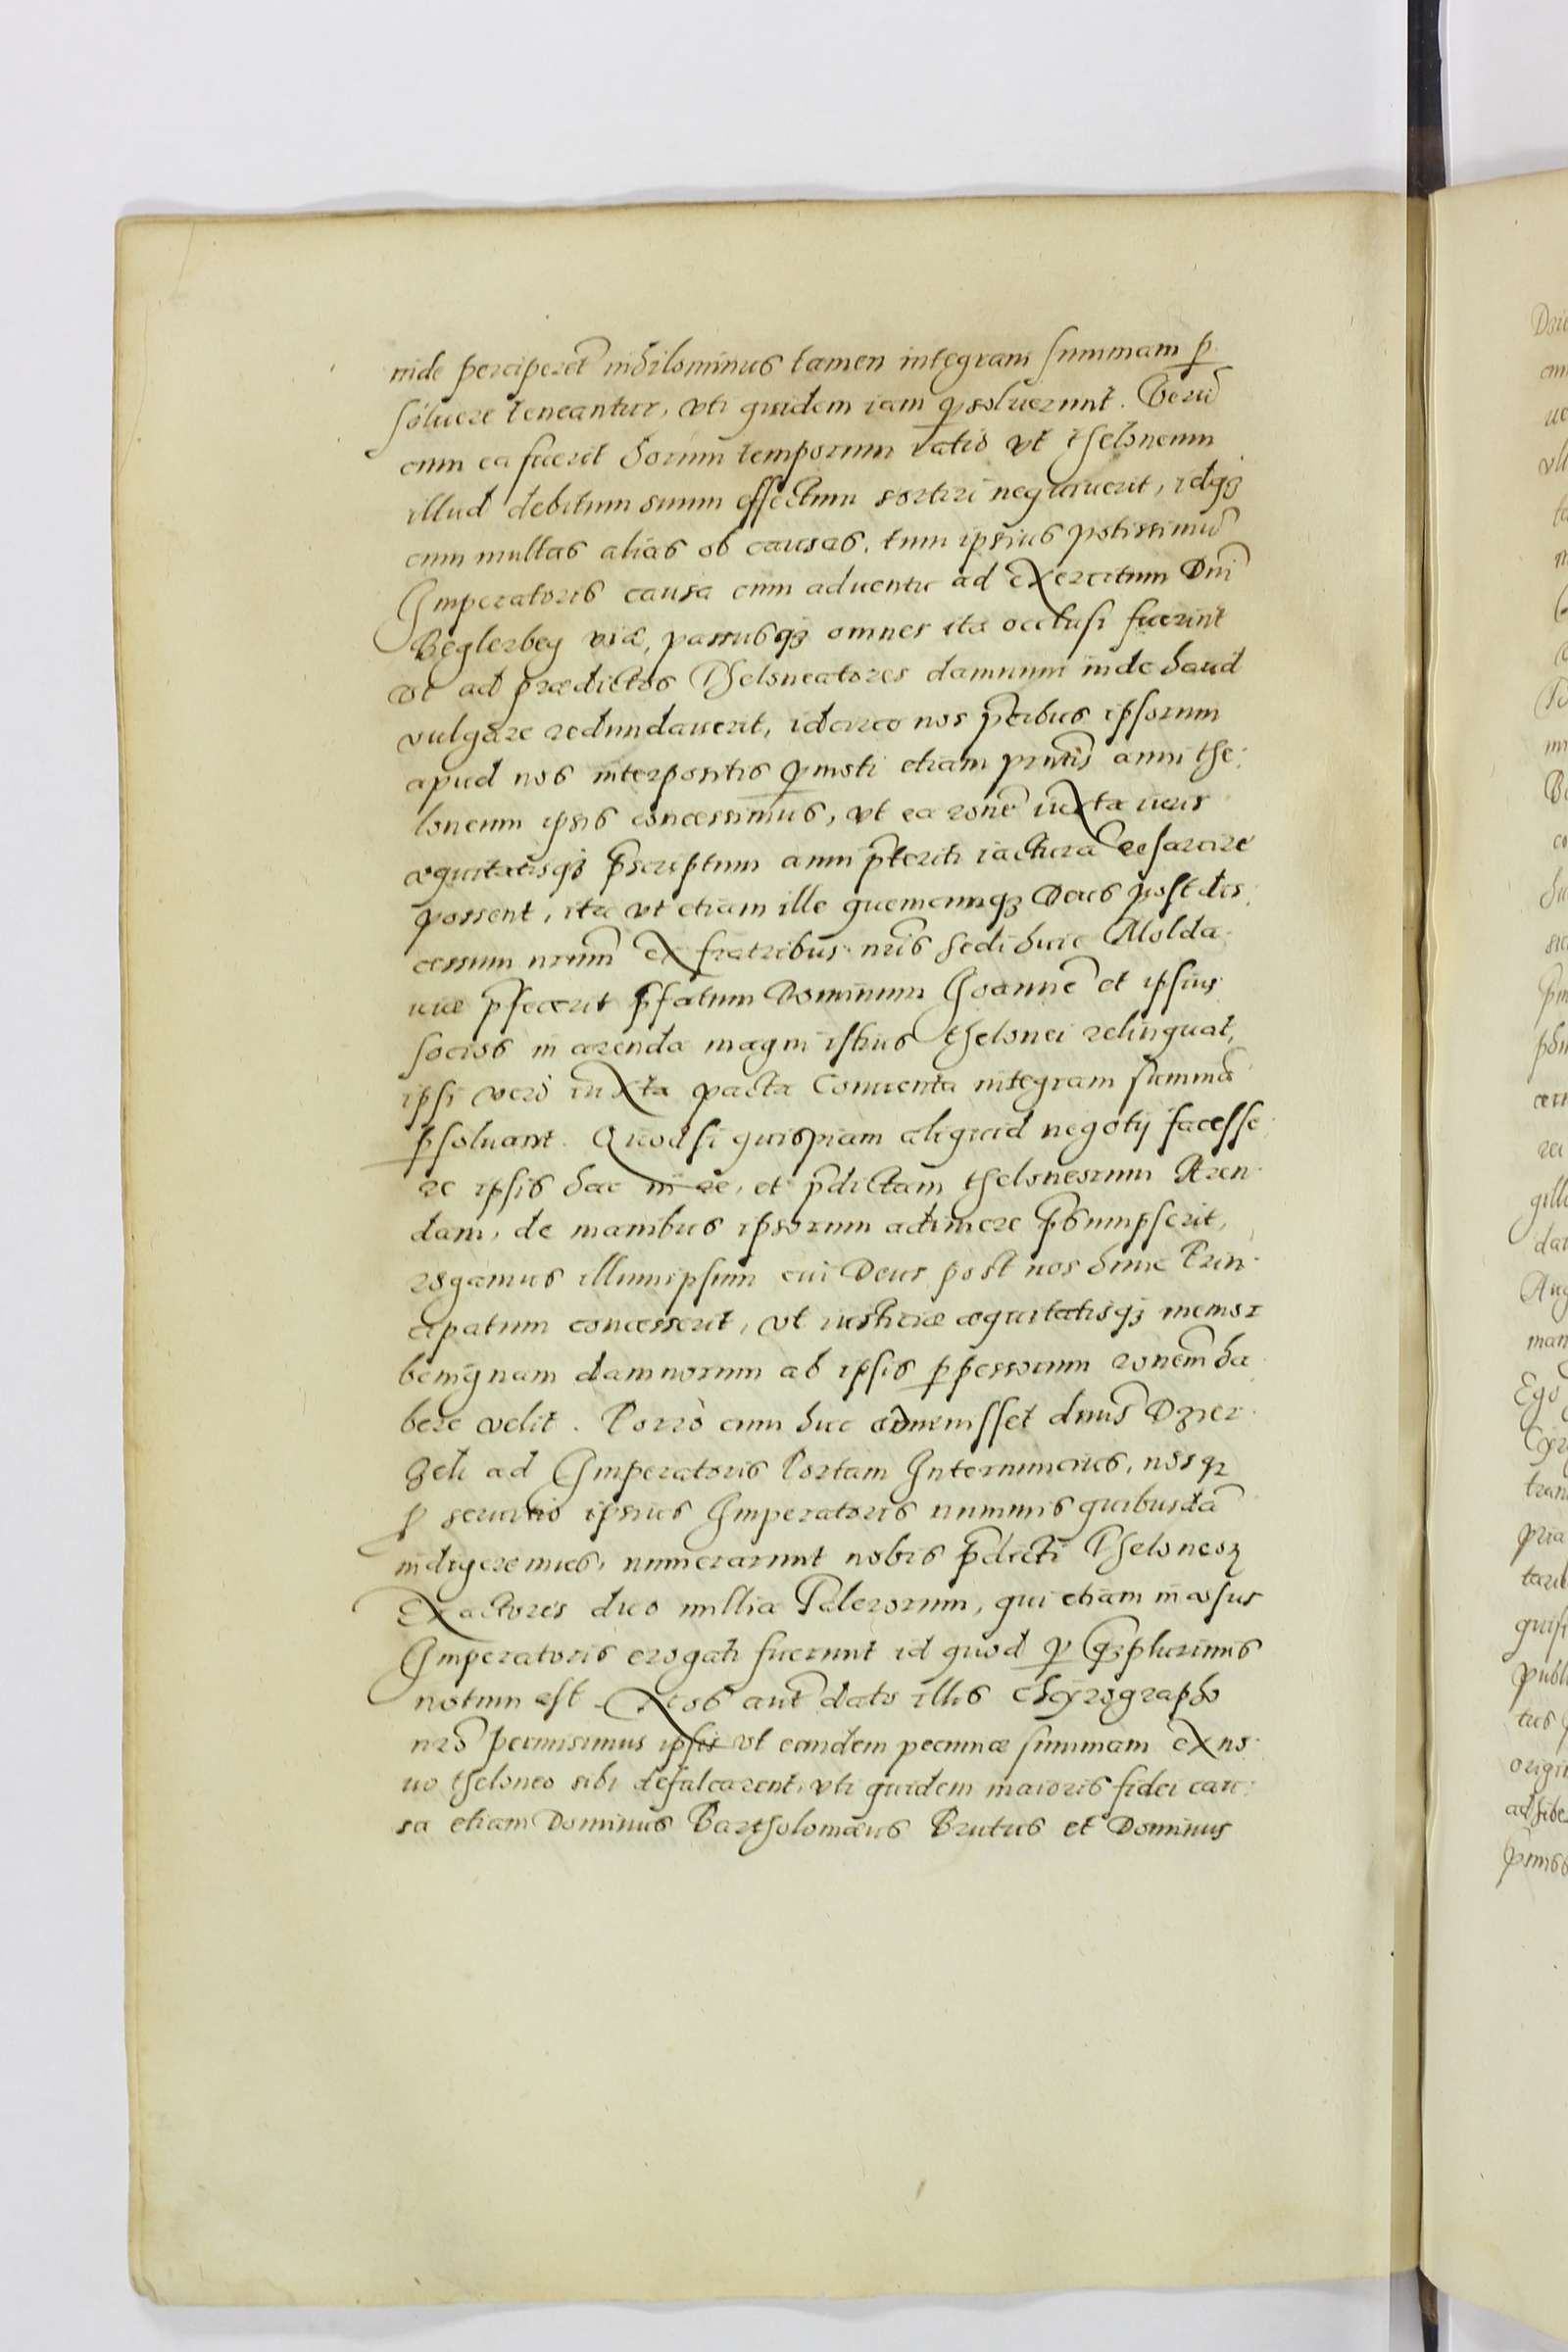 inde perciperet̃ nihilominus tamen integram summam p̱
soluere teneantur, vti quidem iam p̱soluerunt. Verũ
cum ea fuerit horum temporum ratio vt theloneum
illud debitum suum effectum sortiri nequiuerit, idqꝫ
cum multas alias ob causas, tum ipsius potissimũ
Imperatoris causa cum aduentu ad Exercitum Dñi
Beglerbeg viæ, passusqꝫ omnes ita occlusi fuerint
vt ad prædictos Theloneatores damnum inde haud
vulgare redundauerit, idcirco nos p̃cibus ipsorum
apud nos interpositis p̱moti etiam pñtis anni the:
loneum ipsis concessimus, vt ea rone iuxta iuris
æquitatisqꝫ p̃scriptum anni p̃teriti iacturã resarcire
possent, ita vt etiam ille quemcunqꝫ Deus post dis:
cessum nrum̃ ex fratribus nr̃is sedi huic Molda
uiæ p̃fecerit p̃fatum Dominum Joannẽ et ipsius
socios in arenda magni istius thelonei relinquat,
ipsi vero iuxta pacta conuenta integram summã
p̱soluant. Quodsi quispiam aliquid negotij facesse
re ipsis hac in re, et p̃dictam theloneorum Aren
dam, de manibus ipsorum adimere p̃sumpserit,
rogamus illumipsum cui Deus post nos hunc Prin
cipatum concesserit, vt iusticiæ æquitatisqꝫ memor
benignam damnorum ab ipsis p̱pessorum ronem̃ ha
bere velit. Porrò cum huc aduenisset dnus̃ Dzier
zeli ad Imperatoris Portam Internuncius, nosqꝫ
p̱ seruitio ipsius Imperatoris nummis quibusdã
indigeremus, numerarunt nobis p̃dicti Theloneoꝝ
Exactores duo millia Talerorum, qui etiam in vsus
Imperatoris erogati fuerunt id quod p̱ qꝫplurimis
notum est. Nos aut̃ dato illis chyrographo
nr̃o permisimus ipsis vt eandem pecuniæ summam ex no
uo theloneo sibi defalcarent, vti quidem maioris fidei cau:
sa etiam Dominus Bartholomæus Brutus et Dominus